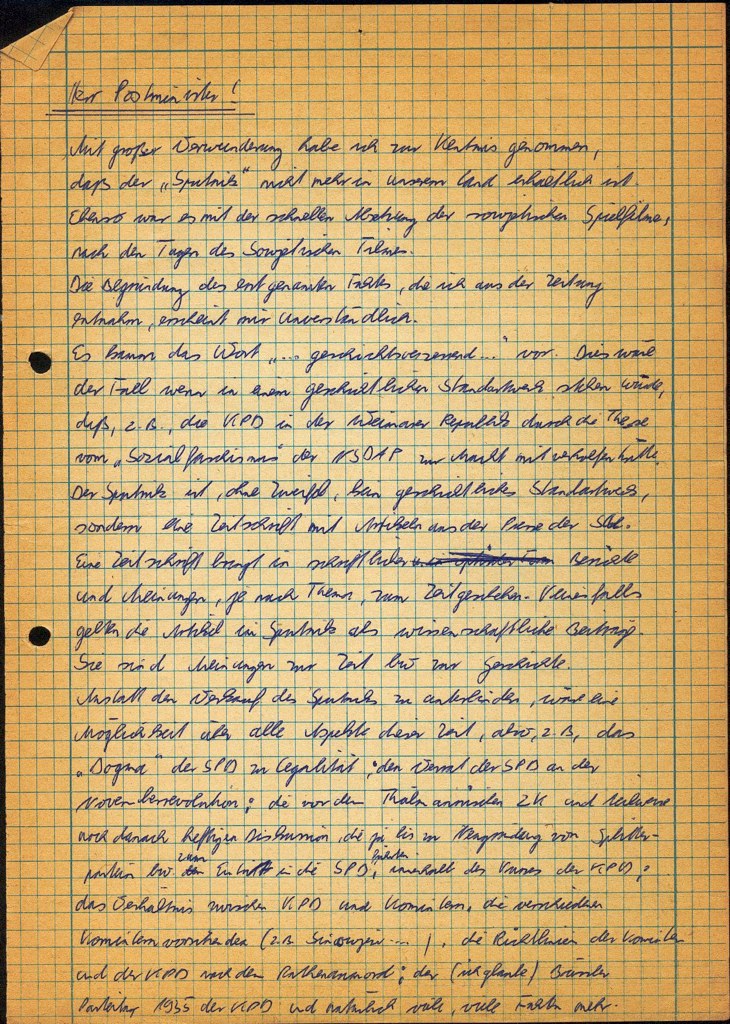 Herr Postminister!
Mit großer Verwunderung habe ich zur Kentnis genommen,
daß der „Sputnik" nicht mehr in unserem Land erhältlich ist.
Ebenso war es mit der schnellen Absetzung der sowjetischen Spielfilme,
nach den Tagen des Sowjetischen Filmes.
Die Begründung des erst genannten Faktes, die ich aus der Zeitung
entnahm, erscheint mir unverständlich.
Es kamm das Wort „... geschichtsverzerrend..." vor. Dies wäre
der Fall wenn in einem geschichtlichen Standartwerk stehen würde,
daß, z.B., die KPD in der Weimarer Republik durch die These
vom „Sozialfaschismus" der NSDAP zur Macht mit verholfen hätte.
Der Sputnik ist, ohne Zweifel, kein geschichtliches Standartwerk,
sondern eine Zeitschrift mit Artikeln aus der Presse der SU.
Eine Zeitschrift bringt in schriftlicher Berichte
und Meinungen, je nach Thema, zum Zeitgeschehen. Keinesfalls
gelten die Artikel im Sputnik als wissenschaftliche Beiträge.
Sie sind Meinungen zur Zeit bzw zur Geschichte.
Anstatt den Verkauf des Sputniks zu unterbinden, wäre eine
Möglichkeit über alle Aspekte dieser Zeit, also, z.B, das
„Dogma" der SPD zu Legalität; den Verrat der SPD an der
Novemberrevolution; die vor dem Thälmannschen ZK und teilweise
noch danach heftigen Diskussion, die ja bis zu Neugründung von Splitter-
parteien bzw zum Eintritt in die SPD führten, innerhalb des Kurses der KPD;
das Verhältnis zwischen KPD und Komintern, die verschiedenen
Kominternvorsitzenden (z.B. Sinowjew...), die Richtlinien der Komintern
und der KPD nach dem Rathenaumord; der (ich glaube) Brüssler
Parteitag 1935 der KPD und natürlich viele, viele Fakten mehr.